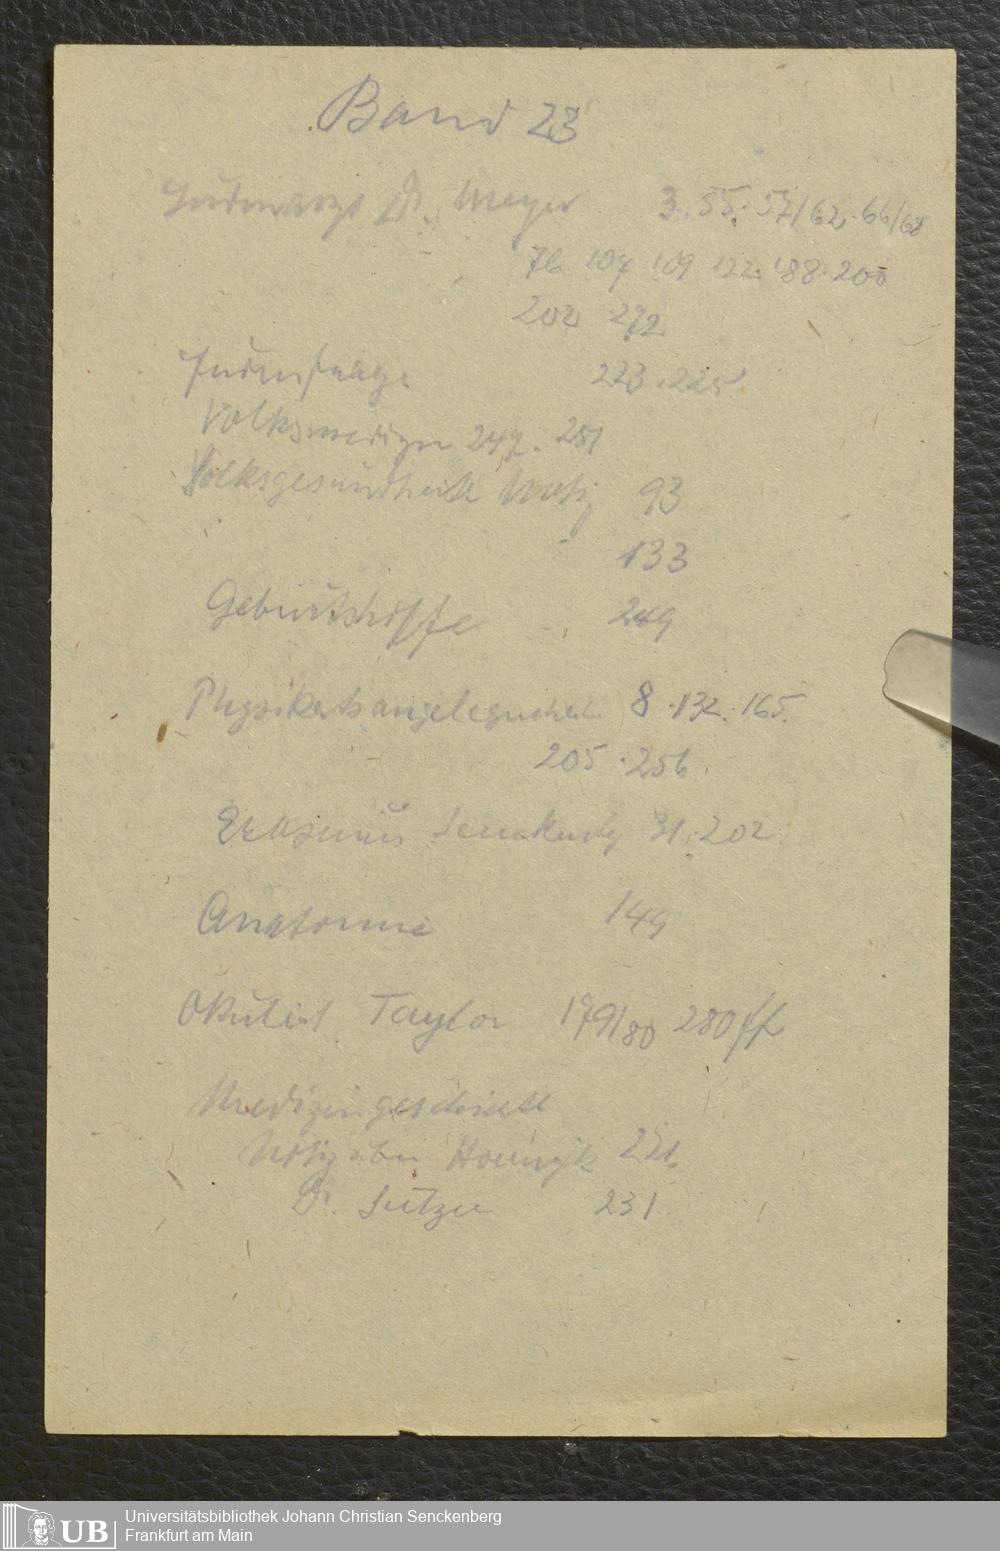 Band 23
Judenarzt Dr. Meyer 3. 55. 57/62. 66/68
76 107 109 122. 188. 200
202 272
Judenfrage 223. 225
Volksmedizin 247. 251
Volksgesundheit Notiz 93
133
Geburtshilfe 249
Physikatsangelegenheit. 8. 132. 165.
205. 256.
Erasmus Senckenbg 31. 202
Anatomie 149
Okulist Taylor 179/80 280ff
Medizingeschichtl
Notiz über Hoernigk 221.
Dr. 231
Universitätsbibliothek Johann Christian Senckenberg
Frankfurt am Main
UB